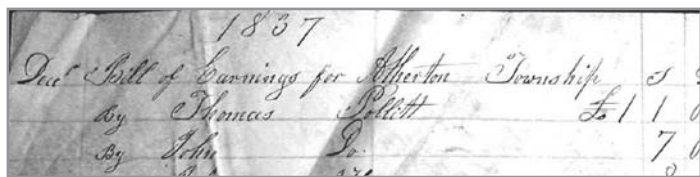 1837
Decr Bill of Earnings for Atherton Township s
By Thomas Pollitt £1 1
By John Do. 7